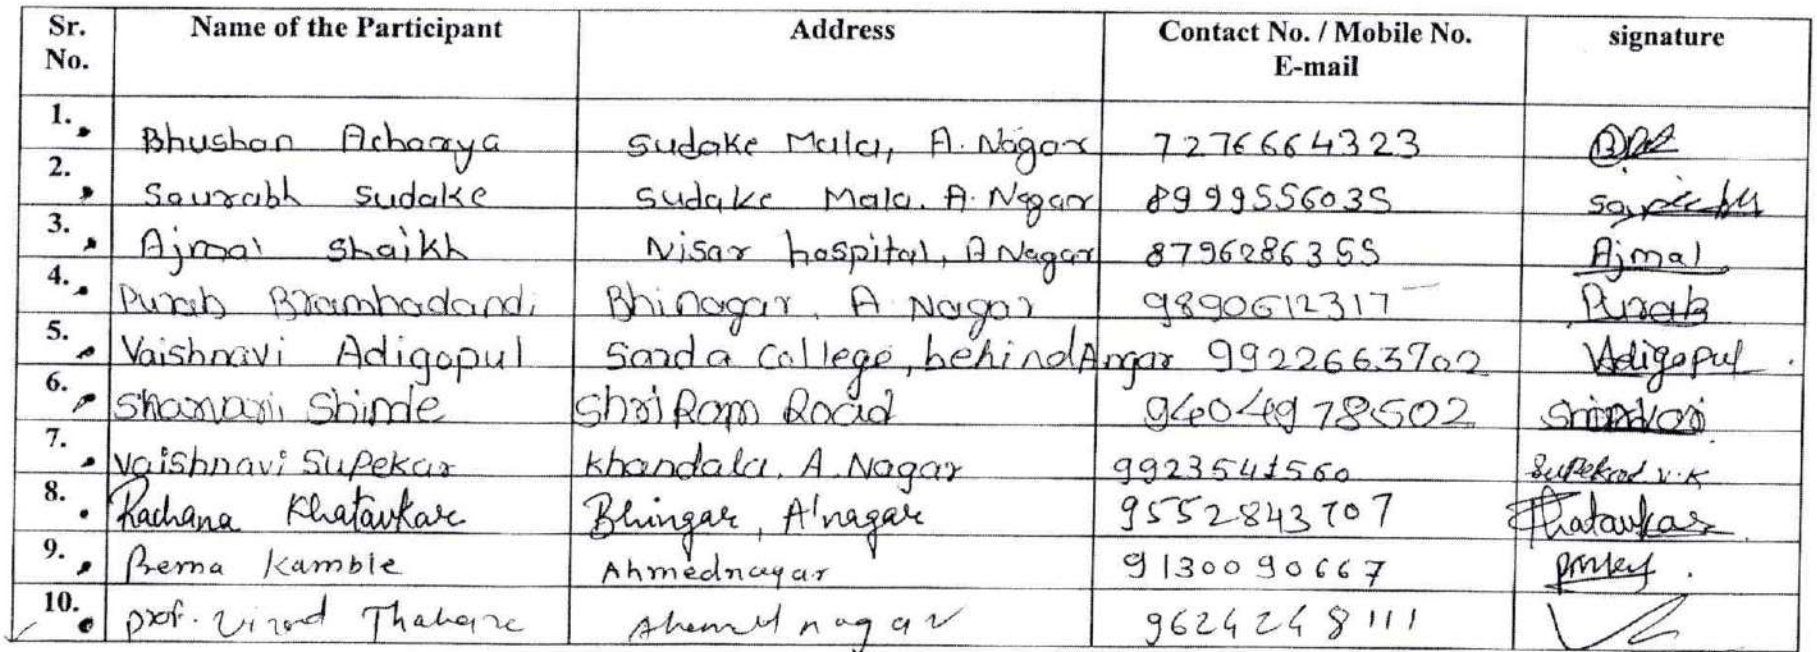 Sr. No. Name of the Participant Address Contact No. / Mobile No. E-mail signature
1. Bhushan Acharya Sudake Mala, A. Nagar 7276664323
2. Saurabh Sudake Sudake Mala. A. Nagar 8999556035
3. Ajmal Shaikh Nisar hospital, A Nagar 8796286355 Ajmal
4. Purab Brambhadandi Bhinagar, A Nagar 9890612317 Purab
5. Vaishnavi Adigopul Sarda College, behind Angar 9922663702 VAdigopul.
6. Shinde ShriRam Road 9404978502
7. Vaishnavi Supekar Khandala, A. Nagar 9923541560 Supekar V.K
8. Rachana Khatavkar Bhingar, A'nagar 9552843707 Khatavkar
9. Kamble Ahmednagar 9130090667
10. prof. Thahare nagar 9624248111